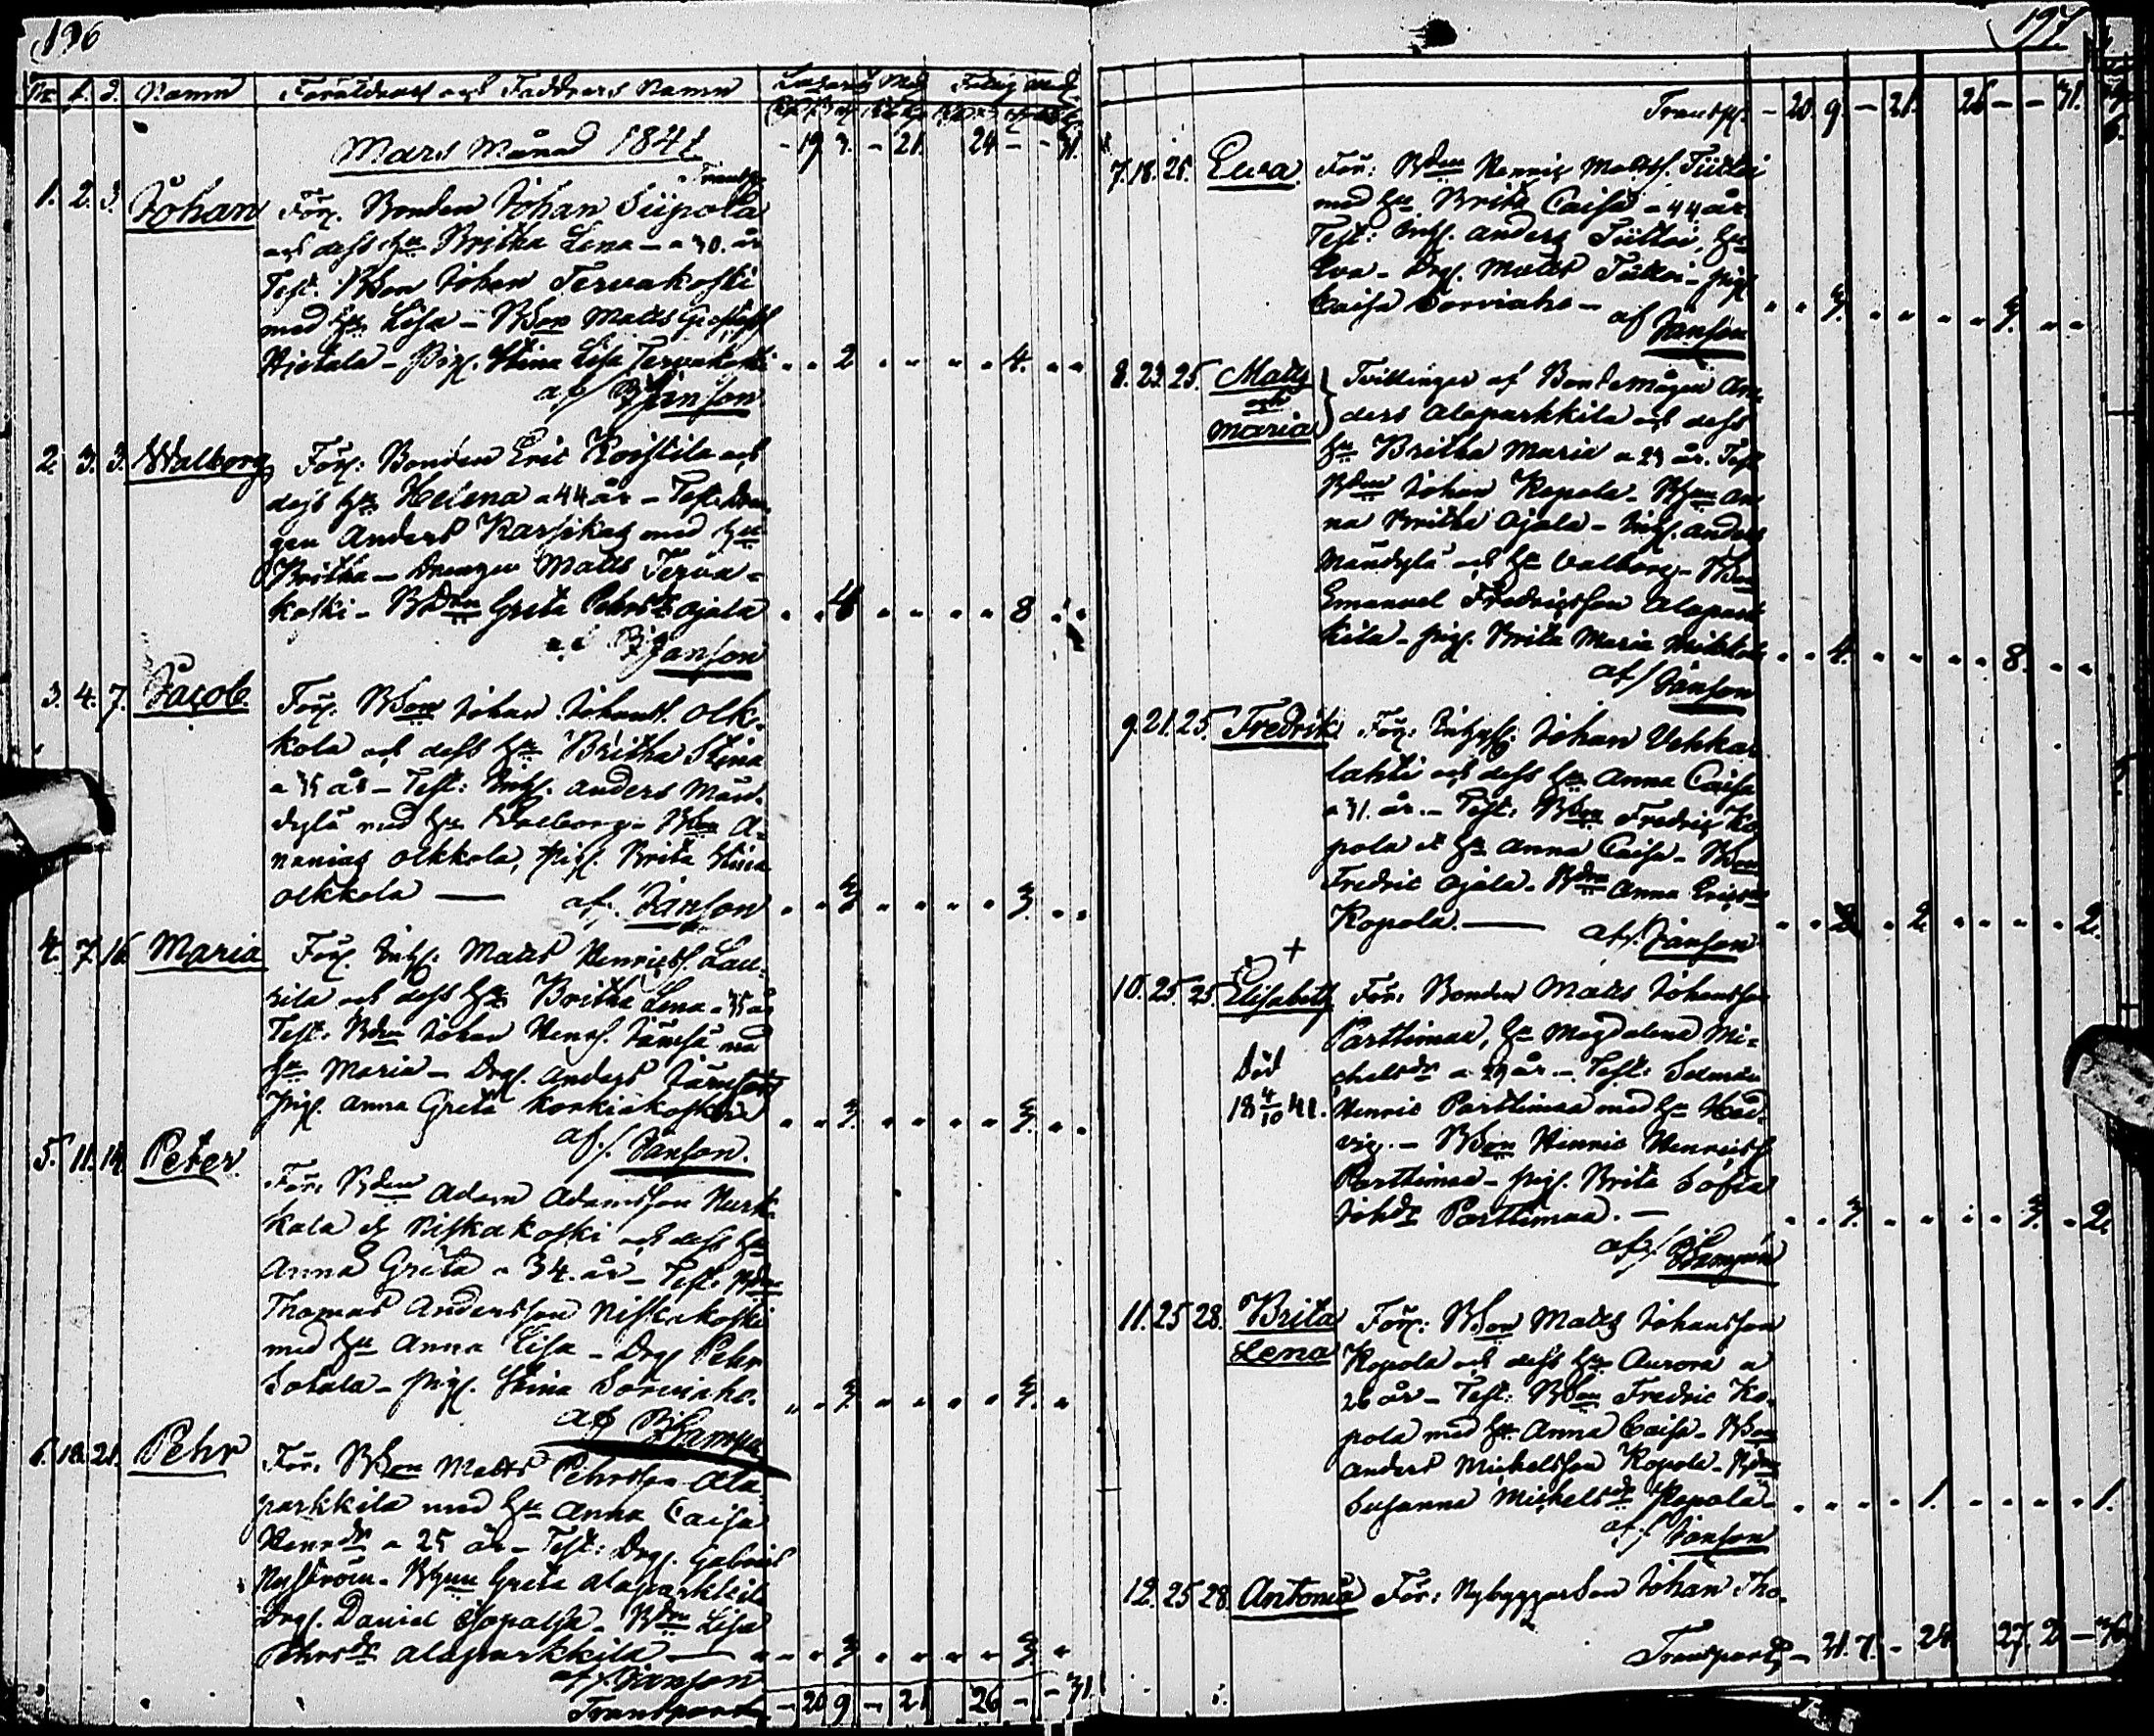 196
No f. d. Namn Föräldrars och Faddrars Namn
Mars Månad 1841
Transp.
- 19 3. - 21. 24 - - 31.
1. 2. 3. Johan Förs. Bonden Johan Siipola
och dess hu Britha Lena - a 30. år
Test. Bdson Johan Tervakoski
med hu Lisa - Bdson Matts
Hietala - Pig. Stina Lisa Tervakoski " " 2 " " " " 4. " "
af Janson
2. 3. 3. Walborg Förs: Bonden Eric Koistila och
dess hu Helena a 44 år - Test. Dren-
gen Anders Karsikas med hu
Britha - Drengen Matts Terva-
koski - Bdn Greta Pehrsdr Ojala " " 4 " " " " 8 " "
Janson
3. 4. 7. Jacob. Förs. Bdson Johan Johans. Olk-
kola och dess hu Britha Stina
a 35 år - Test: Inhs. Anders Män-
dylä med hu Walborg - Bdson A-
nanias Olkkola, Pig. Brita Stina
Olkkola — af. Janson " " 3 " " " " 3. " "
4. 7. 16. Maria Förs. Inhs. Matts Henricss. Lau-
rila och dess hu Britha Lena - 35 år
Test. Bdn Johan Henrs. Jämsä med
hu Maria - Drg. Anders
Pig. Anna Greta Korkiakoski " " 3. " " " " 3. " "
af. Janson.
5. 11. 14. Peter. För. Bden Adam Adamsson Nurk-
kala & Niskakoski och dess hu
Anna Greta a 34. år - Test.
Thomas Andersson Niskakoski
med hu Anna Lisa - Drg Pehr
Sohala - Pig. Stina Sorviaho. " " 3 " " " " 3. "
af
6. 18. 21. Pehr För. Bdson Matts Pehrsson Ala-
parkkila med hu Anna Caisa
Henrdr a 25 år - Test: Drg. Gabriel
Nyström - Greta Alaparkkila
Drg. Daniel - Bdn Lisa
Pehrsdr Alaparkkila — " " 3 " " " " 3 "
af. Janson
Transport - 20 9 - 21 26 - - 31.
197.
Transp. - 20. 9. - 21. 26 - - 31.
7. 18. 25. Ewa. För: Bden Henric Mattss. Tiittoi
med hu Brita Caisa a 44 år
Test: Inhs. Anders Tiittoi, hu
Eva - Drg. Matts Tiittoi - Pig
Caisa Sorviaho - " " 3. " " " " 3. " "
af Janson
8. 22 25. Matts och Maria Tvillingar af Bondemågen An-
ders Alaparkkila och dess
hu Britha Maria a 23 år. Test
Bden Johan Kopola - An-
na Britha Ojala - Inhs. Anders
Mändylä och hu Valborg -
Emanuel Fredricsson Alapark-
kila - Pig. Brita Maria " " 4. " " " " 8. " "
af Janson
9. 21. 25. Fredrik Förs: Inhys. Johan Vehka-
lahti och dess hu Anna Caisa
a 31. år. - Test: Bdson Fredric Ko-
pola & hu Anna Caisa - Bdson
Fredric Ojala. Bdn Anna Ericsdr
Kopola. — " " 2 " 2. " " " " 2.
af. Janson
10. 25. 25. + Elisabeth För: Bonden Matts Johansson
Parttimaa, hu Magdalena Mi-
chelsdr a 29 år. - Test: Soldaten
död
18 4/10 41. Henric Parttimaa med hu Hed-
vig. - Bdson Henric Henricss
Parttimaa - Pig. Brita Sofia
Johdr Parttimaa. — " " 3. " " " " 3. " 2.
af
11. 25 28. Brita Lena Förs: Bdson Matts Johansson
Kopola och dess hu Aurora a
26 år - Test: Bdson Fredric Ko-
pola med hu Anna Caisa - Bdson
Anders Michelsson Kopola -
Susanna Michelsdr Kopola " " " " 1. " " " " 1.
af. Janson
12. 25 28. Antonia För: Nybyggarson Johan Tho-
Transport - 21. 7. - 24. 27. 2 - 36